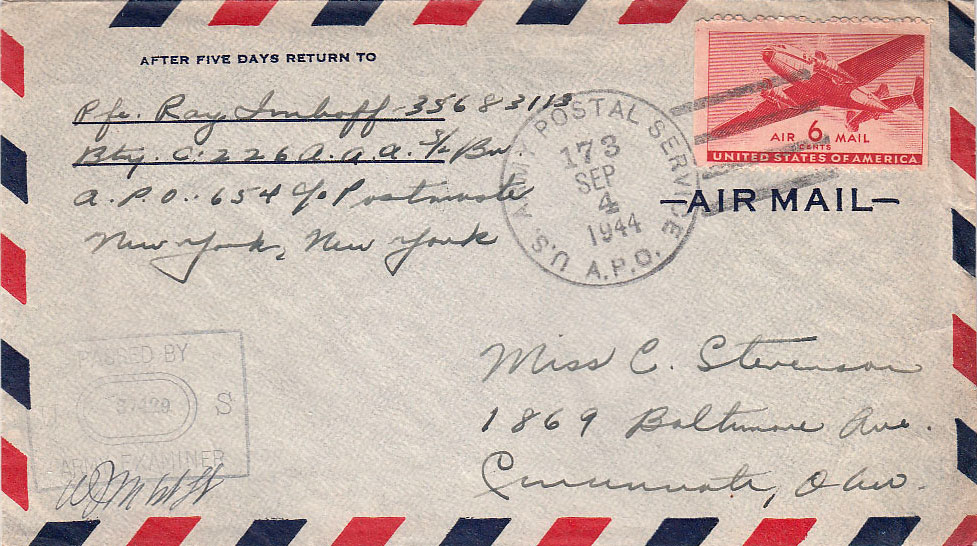 AFTER FIVE DAYS RETURN TO
Pfc. Ray Imhoff-35683113
Btry. C. 226 A.A.A. S/L Bn
A.P.O.. 654 c/o Postmaster
New York, New York
U.S. ARMY POSTAL SERVICE
A.P.O.
173
SEP
4
1944
AIR 6 MAIL
CENTS
UNITED STATES OF AMERICA
AIR MAIL
PASSED BY
U S
ARMY EXAMINER
Miss C. Stevenson
1869 Baltimore Ave.
Cincinnati, Ohio.